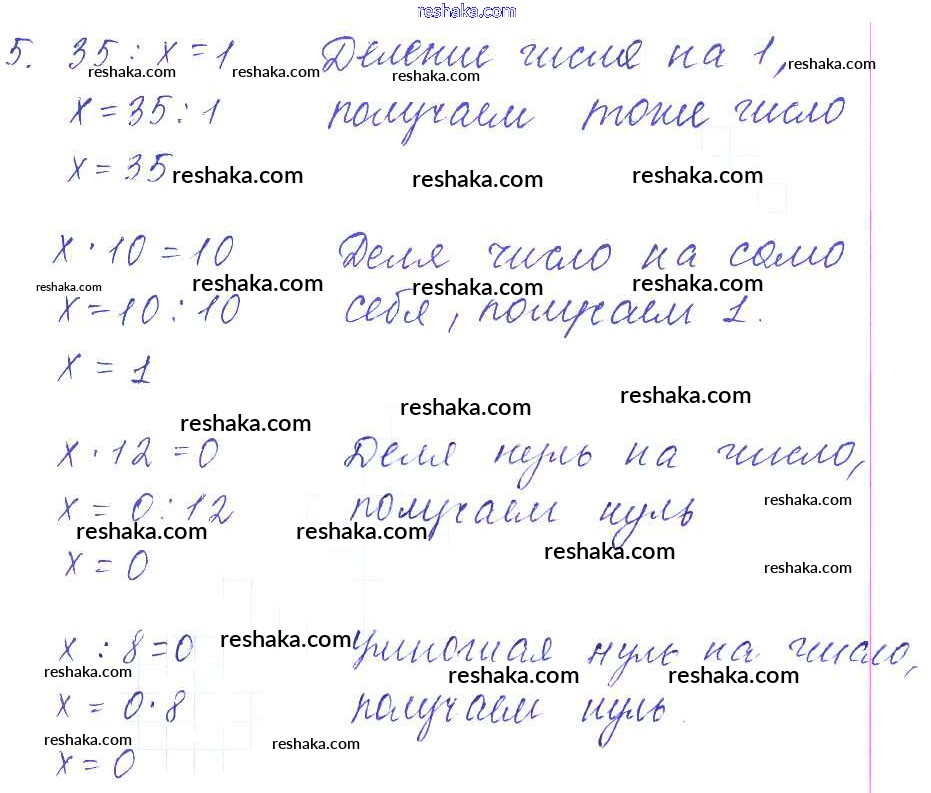 reshaka.com
5. 35 : x = 1 Деление числа на 1,
reshaka.com reshaka.com reshaka.com reshaka.com
x = 35 : 1 получаем тоже число
x = 35
reshaka.com reshaka.com reshaka.com
x · 10 = 10 Деля число на само
reshaka.com reshaka.com reshaka.com reshaka.com
x = 10 : 10 себя, получаем 1.
x = 1
reshaka.com reshaka.com reshaka.com
x · 12 = 0 Деля нуль на число,
reshaka.com
x = 0 : 12 получаем нуль
reshaka.com reshaka.com reshaka.com
x = 0
reshaka.com
x : 8 = 0 Умножая нуль на число,
reshaka.com reshaka.com reshaka.com reshaka.com
x = 0 · 8 получаем нуль.
reshaka.com reshaka.com
x = 0